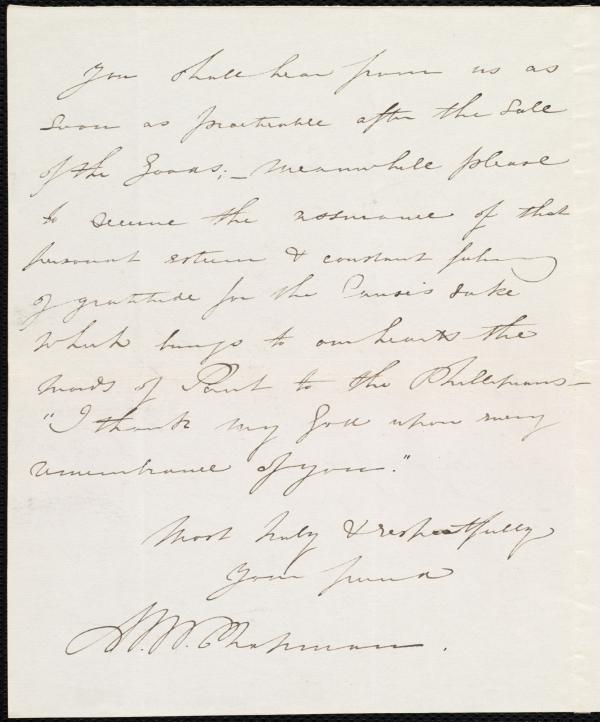 You shall hear from us as
soon as practicable after the Sale
of the Goods; _ meanwhile please
to receive the assurance of that
personal esteem & constant feeling
of gratitude for the Cause's sake
which brings to our hearts the
words of Paul to the Phillipians –
"I thank my God upon every
remembrance of you."
Most truly & respectfully
Your friend
M. W. Chapman.